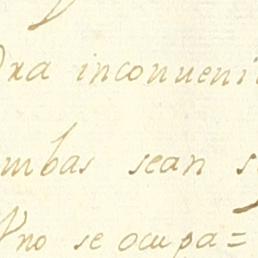 inconueni
mbas sean
Vno se ocupa=